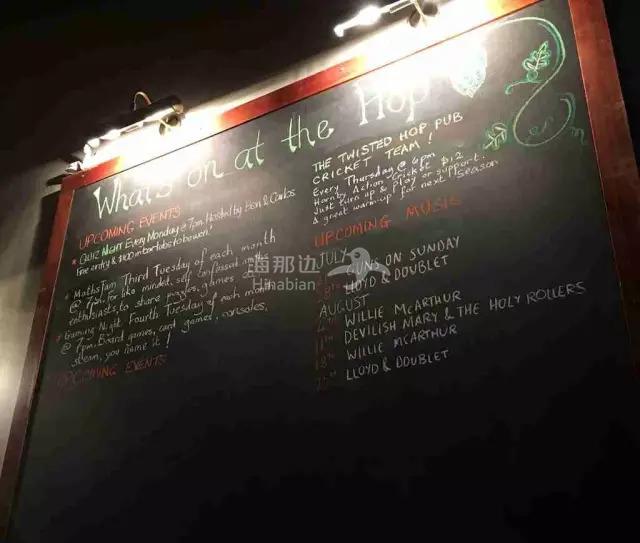 What's on at the Hop
UPCOMING EVENTS
* Quiz Night Every Monday @ 7pm. Hosted by Ben & Carlos
Free entry & $100 in bar tabs to be won!
* MathsJam Third Tuesday of each month
@ 7pm. For like minded, self confessed maths
enthusiasts, to share puzzles, games
* Gaming Night Fourth Tuesday of each month
@ 7pm. Board games, card games, consoles,
steam, you name it!
UPCOMING EVENTS
THE TWISTED HOP PUB
CRICKET TEAM!
Every Thursday @ 6pm
Hornby Action Cricket $12
Just turn up & Play or support.
A great warm-up for next season
UPCOMING MUSIC
JULY
ON SUNDAY
LLOYD & DOUBLET
AUGUST
WILLIE McARTHUR
DEVILISH MARY & THE HOLY ROLLERS
WILLIE MCARTHUR
LLOYD & DOUBLET
海那边
Hinabian